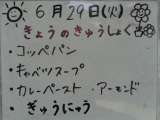 6月29日(火)
きょうのきゅうしょく
・コッペパン
・キャベツスープ
・カレーペースト・アーモンド
・ぎゅうにゅう